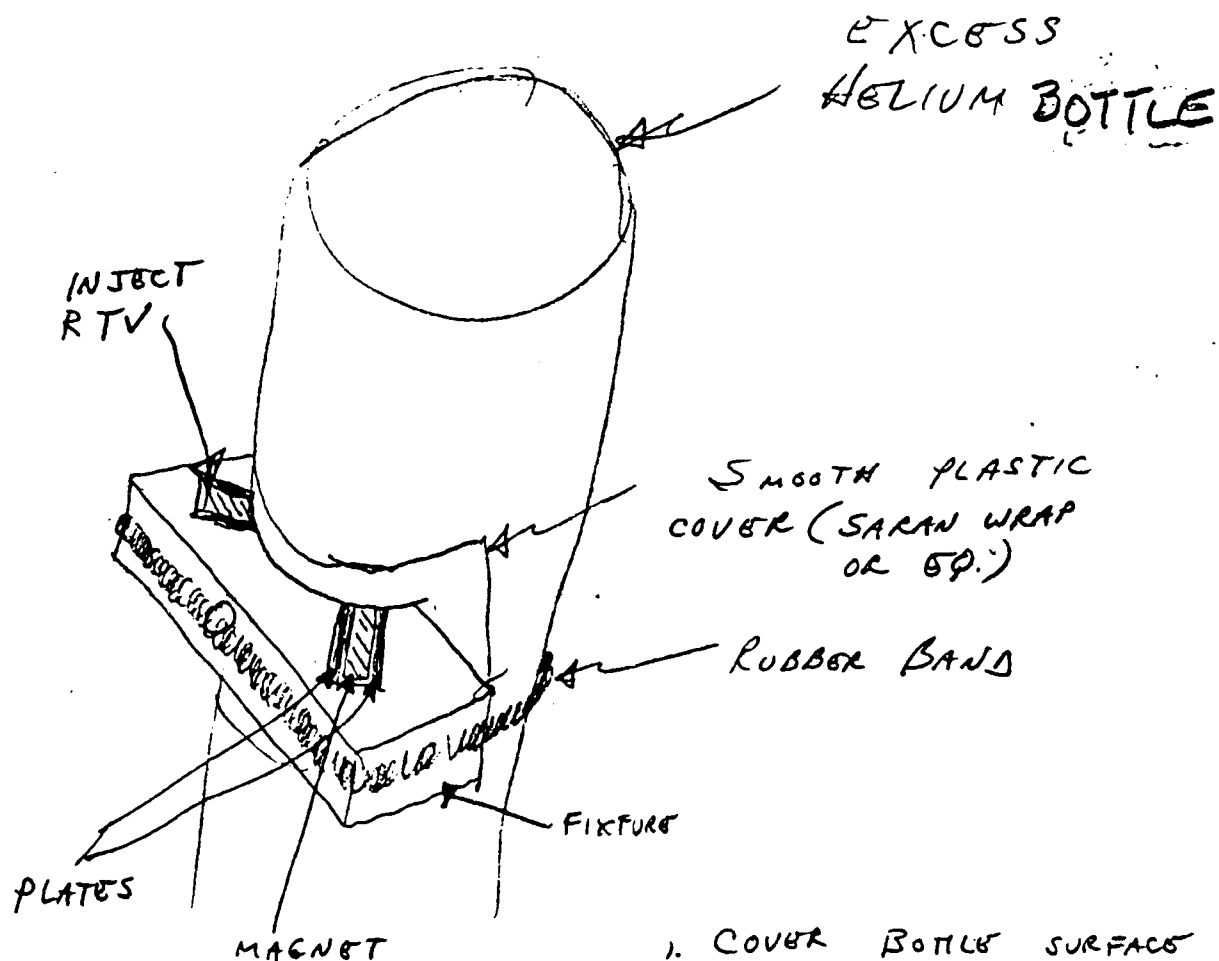 EXCESS
HELIUM BOTTLE
INJECT
RTV
SMOOTH PLASTIC
COVER (SARAN WRAP
OR EQ.)
RUBBER BAND
FIXTURE
PLATES
MAGNET
1. COVER BOTTLE SURFACE